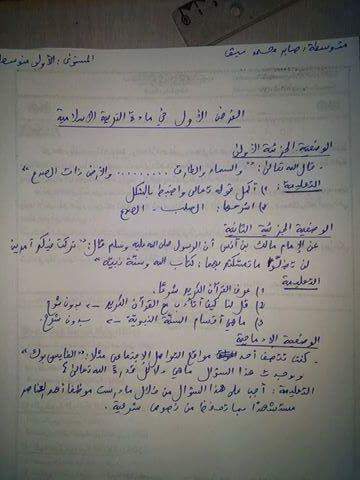 متوسطة: صابر محمد سيق المستوى: الأولى متوسط
الفرض الأول في مادة التربية الإسلامية
الوضعية الجزئية الأولى
- قال الله تعالى: "والسماء والطارق ......... والأرض ذات الصدع"
التعليمة: 1) أكمل قوله تعالى واضبط بالشكل
2) اشرح ما: الصلب - الصدع
الوضعية الجزئية الثانية
عن الإمام مالك بن أنس أن الرسول صلى الله عليه وسلم قال: "تركت فيكم أمرين
لن تضلوا ما تمسكتم بهما: كتاب الله وسنة نبيه"
التعليمة
1) عرف القرآن الكريم شرعًا.
2) قل لنا كيف أتأدب مع القرآن الكريم - بدون شرح
3) ماهي أقسام السنة النبوية - بدون شرح.
الوضعية الإدماجية
- كنت تتصفح أحد مواقع التواصل الاجتماعي مثلا: "الفايس بوك"
ووجدت هذا السؤال ماهي دلائل قدرة الله تعالى؟
التعليمة: أجب على هذا السؤال من خلال ما درست موظفا أحد العناصر
مستشهدًا بما تحفظ من نصوص شرعية.